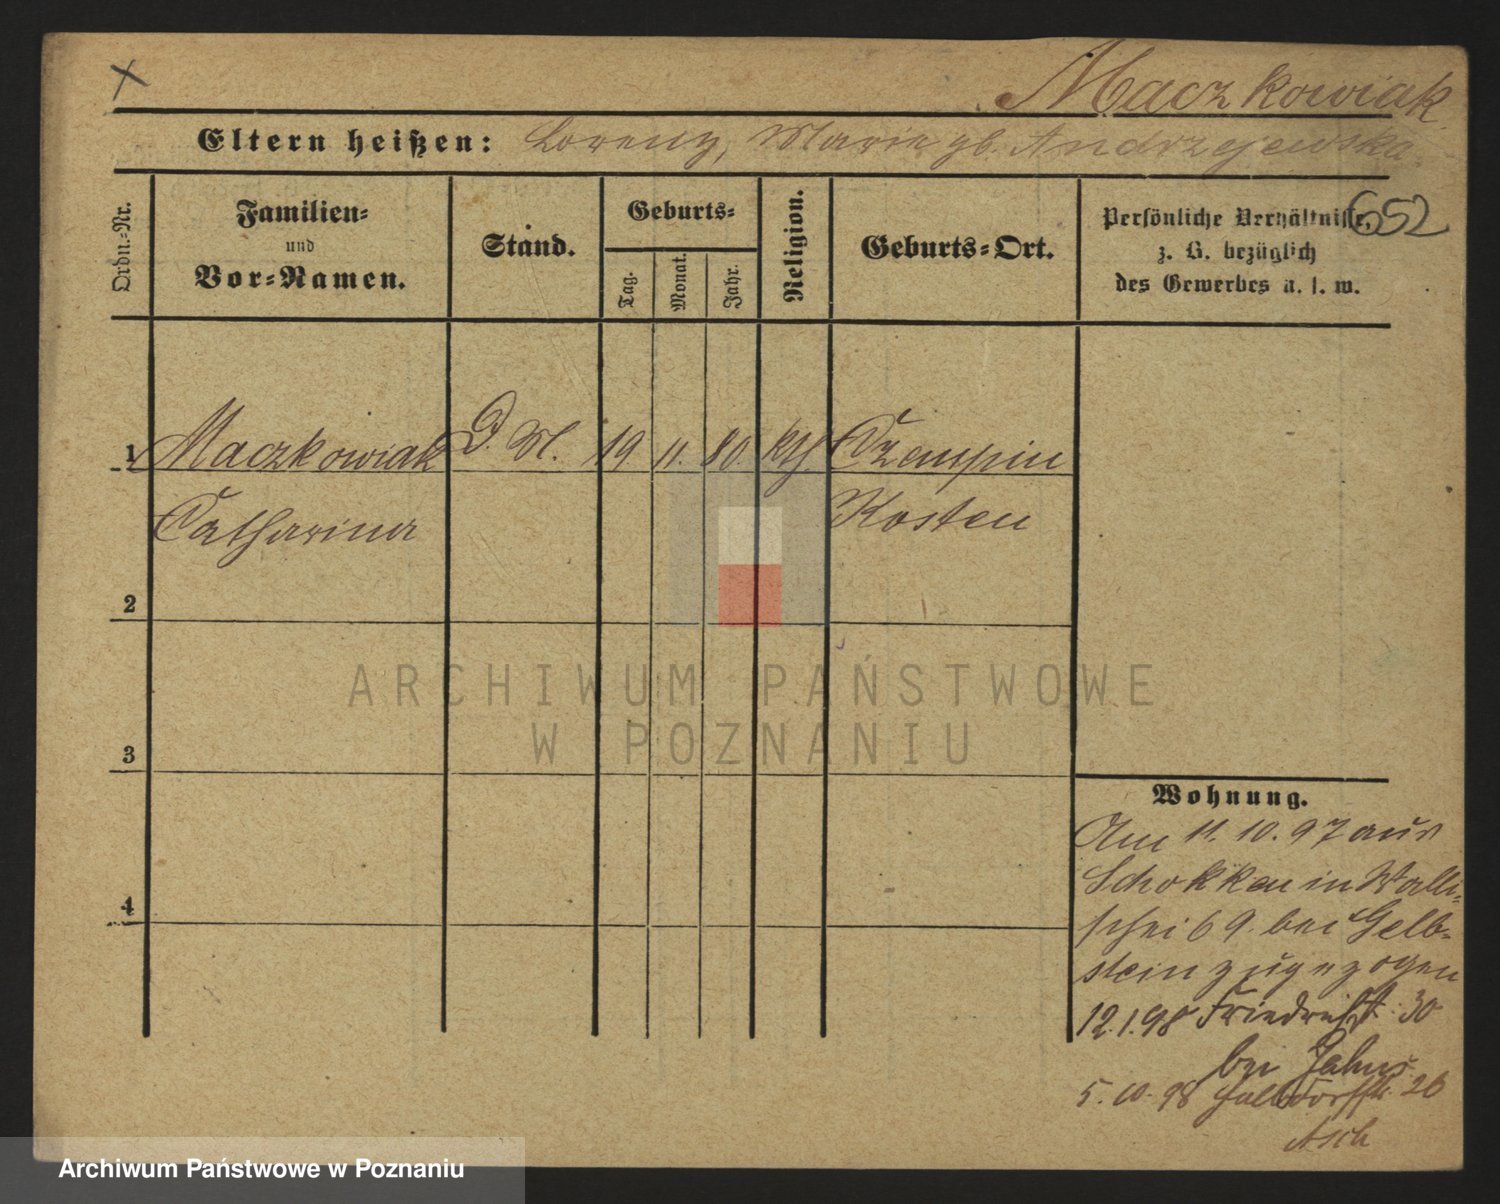 x
Maczkowiak
Eltern heißen: Lorenz, Marie gb. Andrzejewska
652
Ordn.-Nr.
Familien-
und
Vor-Namen.
Stand.
Geburts-
Tag.
Monat.
Jahr.
Religion.
Geburts-Ort.
Persönliche Verhältnisse,
z. B. bezüglich
des Gewerbes u. s. w.
1 Maczkowiak D. M. 19 11. 80. kth. Czempin
Catharina Kosten
2
3
4
ARCHIWUM PAŃSTWOWE
W POZNANIU
Wohnung.
Am 11. 10. 97 aus
Schokken in Walli-
schei 69. bei Gelb-
stein zugezogen
12.1.98 Friedrichst. 30
bei Jahns
5. 10. 98 26
Asch
Archiwum Państwowe w Poznaniu